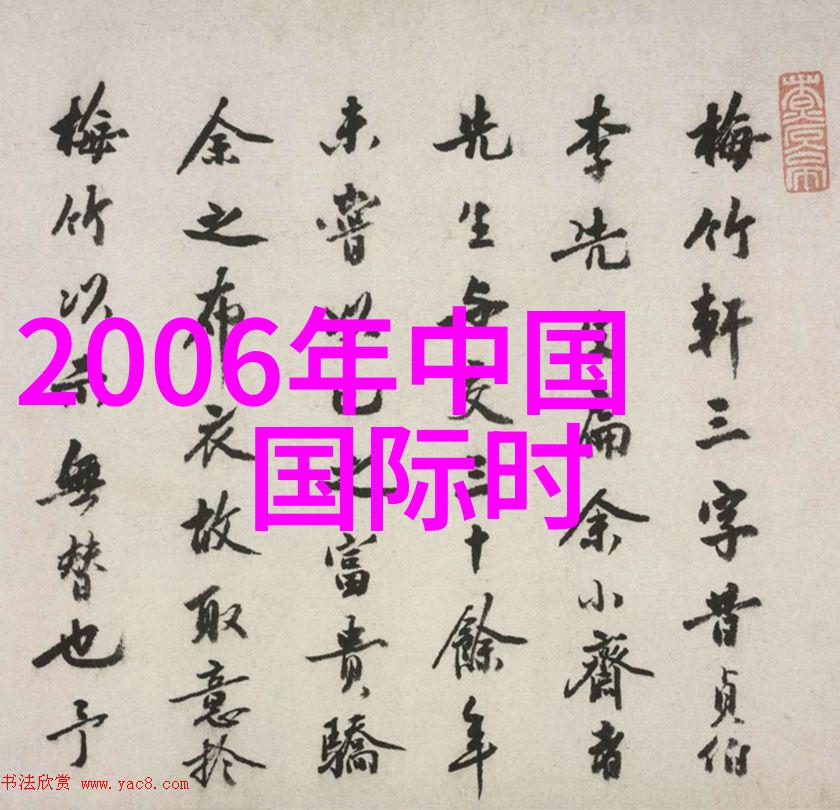 梅竹軒三字昔貞伯
李先扁余小齋者
先生与交三十餘年
未嘗以己之富貴驕
余之布衣故取意於
梅竹以示無替也予
2006年中国
国际时
书法欣赏 www.yac8.com